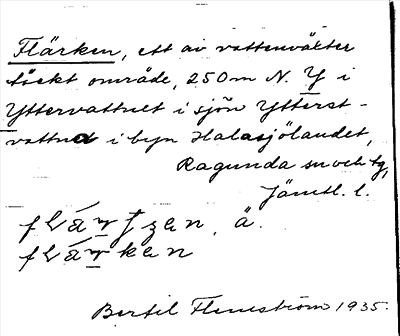 Flärken, ett av vattenväxter
täckt område, 250 m N. Y i
Yttervattnet i sjön Ytterst-
vattnet i byn Halasjölandet,
Ragunda sn och tg,
Jämtl. l.
flä́rtzen, ä.
flä́rken
Bertil Flemström 1935.